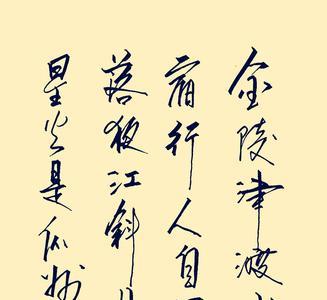 金陵津渡
宿行人自
落夜江斜
星火是瓜洲